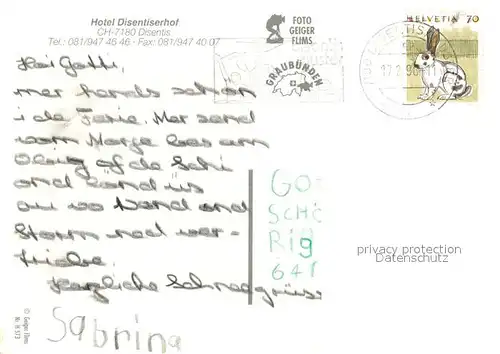 Hotel Disentiserhof
CH-7180 Disentis
Tel.: 081/947 46 46 · Fax: 081/947 40 07
FOTO
GEIGER
FLIMS
HELVETIA 70
GRAUBÜNDEN
Hoi Gotti,
mer hands schön
i de Ferie. Mer sand
vom Morge bis am
Obig uf de Schi
and land üs
au vo Wand and
Storm ned ver-
triebe.
Herzliche Schneegrüss
Sabrina
GO
SCHÖ
Rig
641
privacy protection
Datenschutz
© Geiger Flims